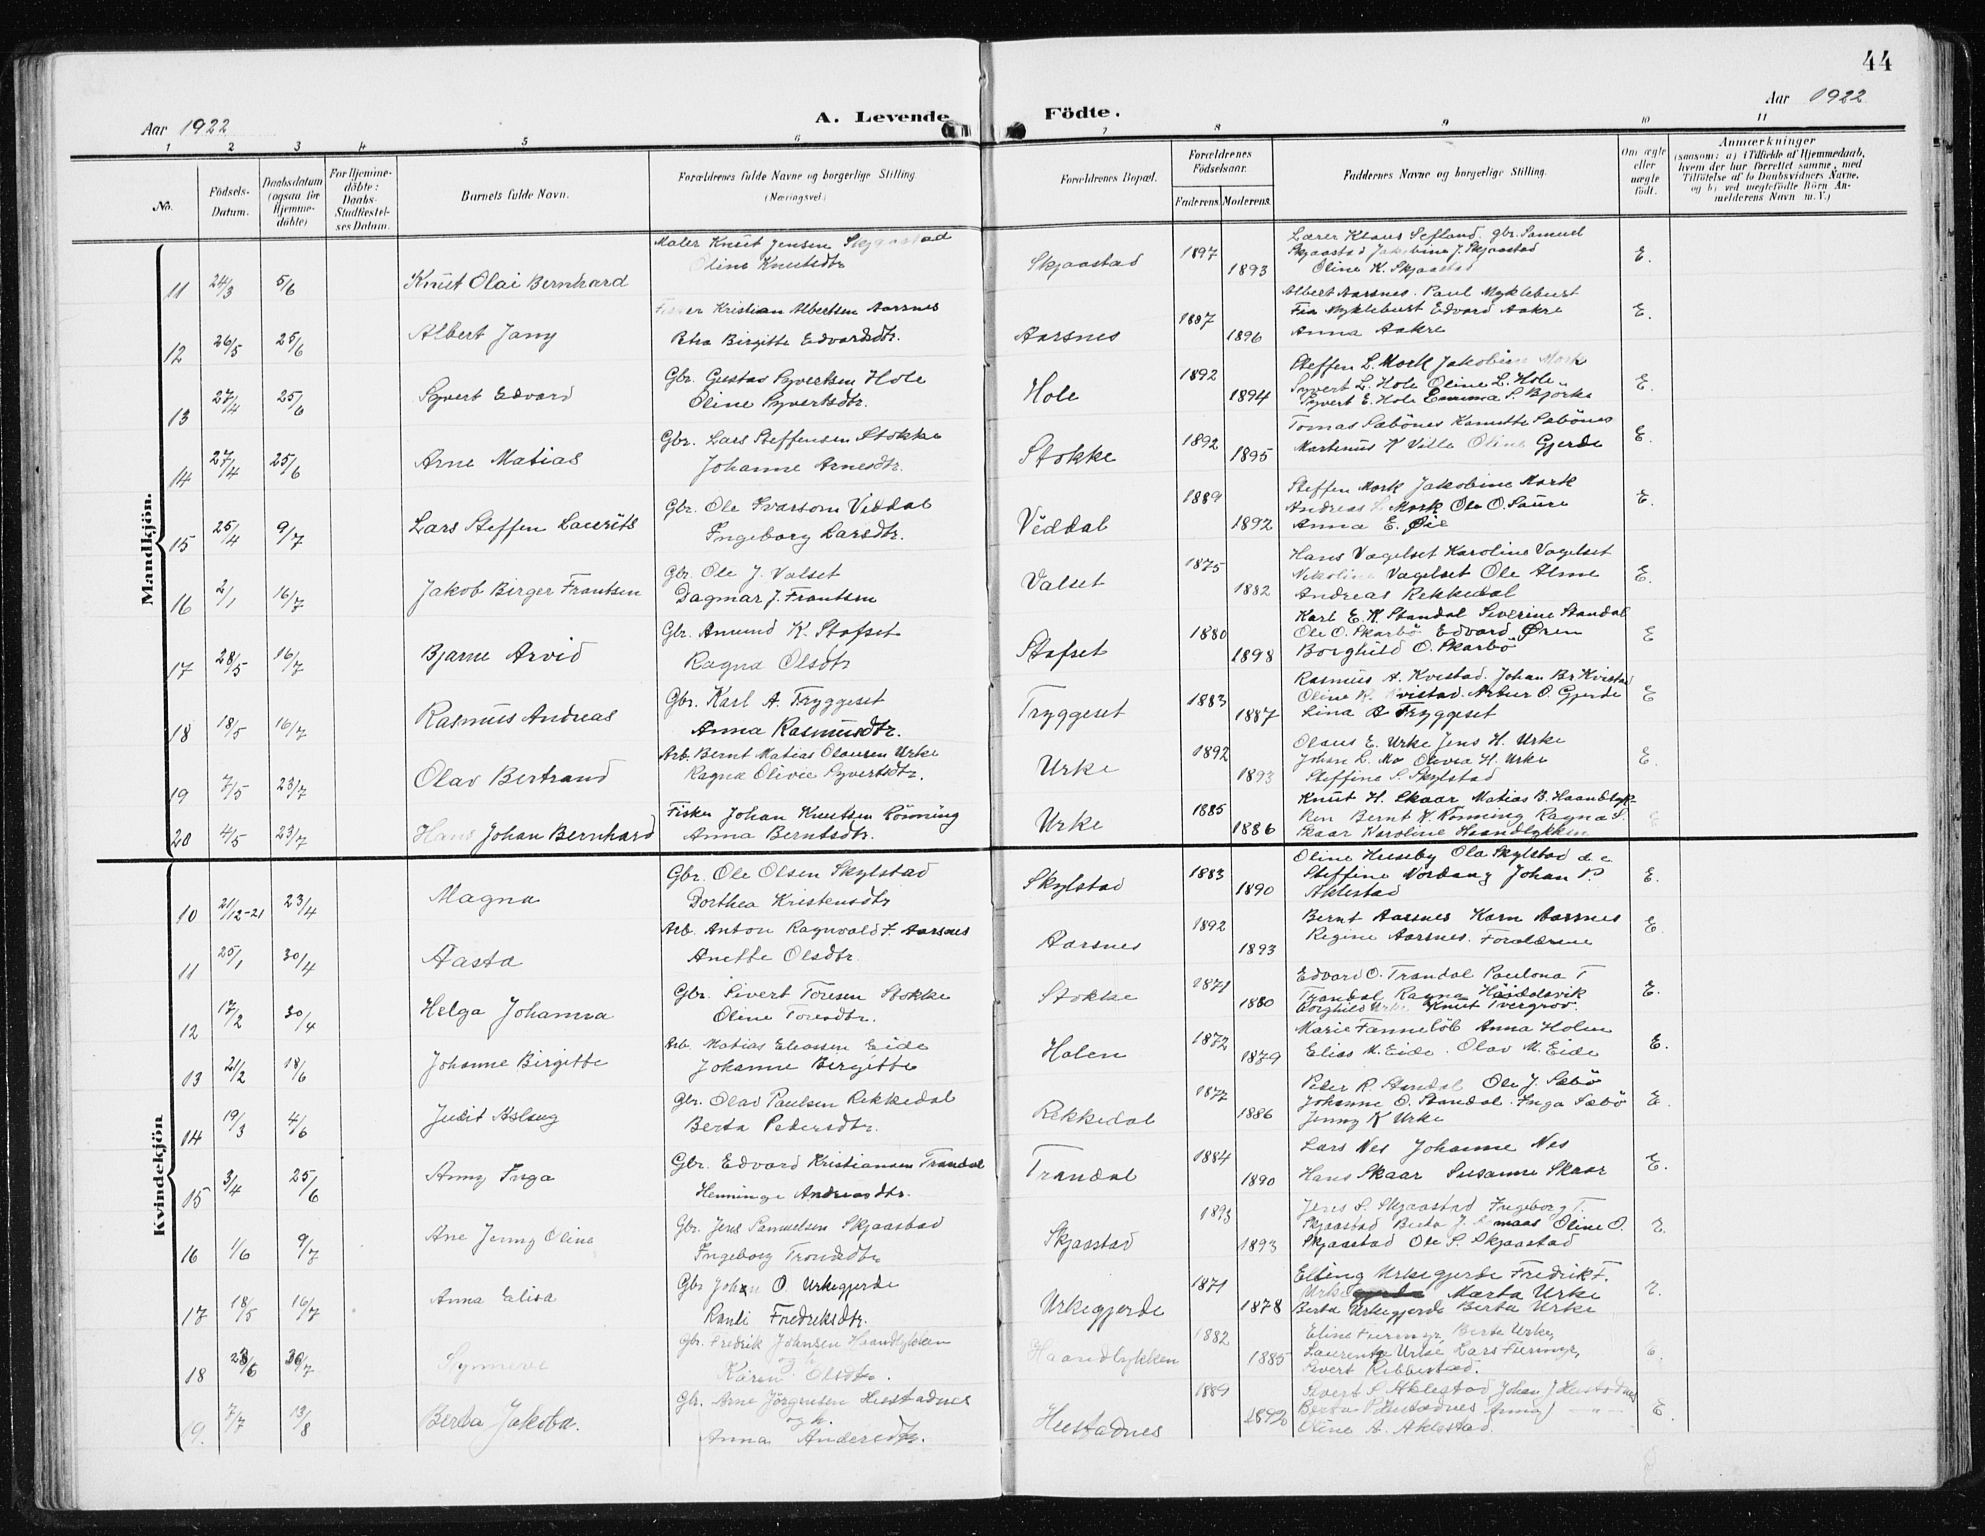 44
Aar 1922
A. Levende
Födte.
Aar 1922
1 2 3 4 5 6 7 8 9 10 11
No.
Födsels-Datum.
Daabsdatum (ogsaa for Hjemmedöbte)
For Hjemmedöbte: Daabs-Stadfæstelses Datum.
Barnets fulde Navn.
Forældrenes fulde Navne og borgerlige Stilling (Næringsvei.)
Forældrenes Bopæl.
Forældrenes Födselsaar.
Faderens. Moderens.
Faddernes Navne og borgerlige Stilling.
Om ægte eller uægte født.
Anmærkninger
(saasom: a) i Tilfælde af Hjemmedaab, hvem der har forrettet samme, med Tilföielse af to Daabsvidners Navne, og b) ved uægtefödte Börn Anmelderens Navn m. V.)
Mandkjön.
Maler Knut Jensen Skjaastad
11 24/3 5/6 Knut Olai Bernhard
Oline Knutsdtr
Skjaastad 1897 1893
Lærer Klaus Sefland. Gbr. Samuel
Skjaastad Jakobine J. Skjaastad
Oline K. Skjaastad
E.
Fisker Kristian Albertsen Aarsnes
12 26/5 25/6 Albert Jany
Petra Birgitte Edvardsdtr.
Aarsnes 1887 1896
Albert Aarsnes. Paul Myklebust
Fea Myklebust Edvard Aakre
Anna Aakre
E.
Gbr. Gustav Syvertsen Hole
13 27/4 25/6 Syvert Edvard
Oline Syvertsdtr.
Hole 1892 1894
Steffen L. Mork Jakobine Mork
Syvert L. Hole Oline L. Hole
Syvert E. Hole Emma S. Bjørke
E.
Gbr. Lars Steffensen Stokke
14 27/4 25/6 Arne Matias
Johanne Arnesdtr.
Stokke 1892 1895
Tomas Sæbönes Kanutte Sæbönes
Martinus K Ville Oline Gjerde
E.
Gbr. Ole Ivarson Viddal
15 25/4 9/7 Lars Steffen Laurits
Ingeborg Larsdtr.
Viddal 1889 1892
Steffen Mork Jakobine Mork
Andreas L Mork Ole O. Saure
Anna E. Øie
E.
Gbr. Ole J. Valset
16 2/1 16/7 Jakob Birger Frantsen
Dagmar J. Frantsen
Valset 1875 1882
Hans Vagelset Karoline Vagelset
Nikoline Vagelset Ole Alme
Andreas Rekkedal
E.
Gbr. Amund K. Stafset
17 28/5 16/7 Bjarne Arvid
Ragna Olsdtr
Stafset 1880 1898
Karl E. K. Standal Severine Standal
Ole O. Skarbö Edvard Øren
Borghild O. Skarbö
E
Gbr. Karl A. Tryggeset
18 18/5 16/7 Rasmus Andreas
Anna Rasmusdtr.
Tryggeset 1883 1887
Rasmus A. Kvistad. Johan Br Kvistad
Oline K. Kvistad. Artur O. Gjerde
Lina A Tryggeset
E
Arb. Bernt Matias Olausen Urke
19 7/5 23/7 Olav Bertrand
Ragna Olivie Syvertsdtr.
Urke 1892 1893
Olaus E. Urke Jens H. Urke
Johan L. Mo Olivia H. Urke
Steffine S. Skylstad
E.
Fisker Johan Knutsen Rönning
20 4/5 23/7 Hans Johan Bernhard
Anna Berntsdtr.
Urke 1885 1886
Knut H. Skaar Matias B. Haandlyk-
ken Bernt K. Rönning Ragna S.
Skaar Karoline Haandlykken
E
Kvindekjön
Gbr. Ole Olsen Skylstad
10 21/12-21 23/4 Magna
Dorthea Kristensdtr
Skylstad 1883 1890
Oline Huseby Ola Skylstad
Steffine Nordang Johan P.
Aklestad
E.
Arb. Anton Ragnvald F. Aarsnes
11 25/1 30/4 Aasta
Anette Olsdtr.
Aarsnes 1892 1893
Bernt Aarsnes Karn Aarsnes
Regine Aarsnes. Forældrene
E.
Gbr. Sivert Toresen Stokke
12 17/2 30/4 Helga Johanna
Oline Toresdtr.
Stokke 1871 1880
Edvard O. Trandal Paulona T
Trandal Ragna
Borghild Urke Knut Tvergrov.
E.
Arb. Matias Eleassen Eide
13 21/2 18/6 Johanne Birgitte
Johanne Bergitte
Holen 1872 1879
Marie Tanneløb Anna Holen
Elias M. Eide. Olav M. Eide
E.
Gbr. Olav Paulsen Rekkedal
14 19/3 4/6 Judit Aslaug
Berta Petersdtr.
Rekkedal 1877 1886
Peder R. Standal Ole J. Sæbö
Johanne O. Standal. Inga Sæbö
Jenny K Urke
E.
Gbr. Edvard Kristiansen Trandal
15 3/4 25/6 Anny Inga
Henninge Andreasdtr.
Trandal 1884 1890
Lars Nes Johanne Nes
Hans Skaar Susanne Skaar
E.
Gbr. Jens Samuelsen Skjaastad
16 1/6 9/7 Ane Jenny Oline
Ingeborg Trondsdtr
Skjaastad 1893 1893
Jens S. Skjaastad Ingeborg T.
Skjaastad Berta J. Oline O.
Skjaastad Ole S. Skjaastad
E.
Gbr Johan O. Urkegjerde
17 18/5 16/7 Anna Elisa
Ranli Fredriksdtr.
Urkegjerde 1871 1878
Elling Urkegjerde Fredrik F.
Urke Marta Urke
Berta Urkegjerde Berta Urke
E.
Gbr. Fredrik Johnsen Haandlykken
18 28/5 30/7 Synneve
Karen Olsdtr.
Haandlykken 1882 1885
Eline Furmyr, Berte Urke,
Laurentse Urke Lars Furmyr,
Sivert Ribbestad.
E.
Gbr. Arne Jörgensen Hustadnes
19. 7/7 13/8 Berta Jakoba.
og h.
Anna Andersdtr.
Hustadnes 1889 1892
Sivert S. Aklestad Johan J Hustadnes
Berta P. Hustadnes Anna J — " —
Oline A. Aklestad.
E.